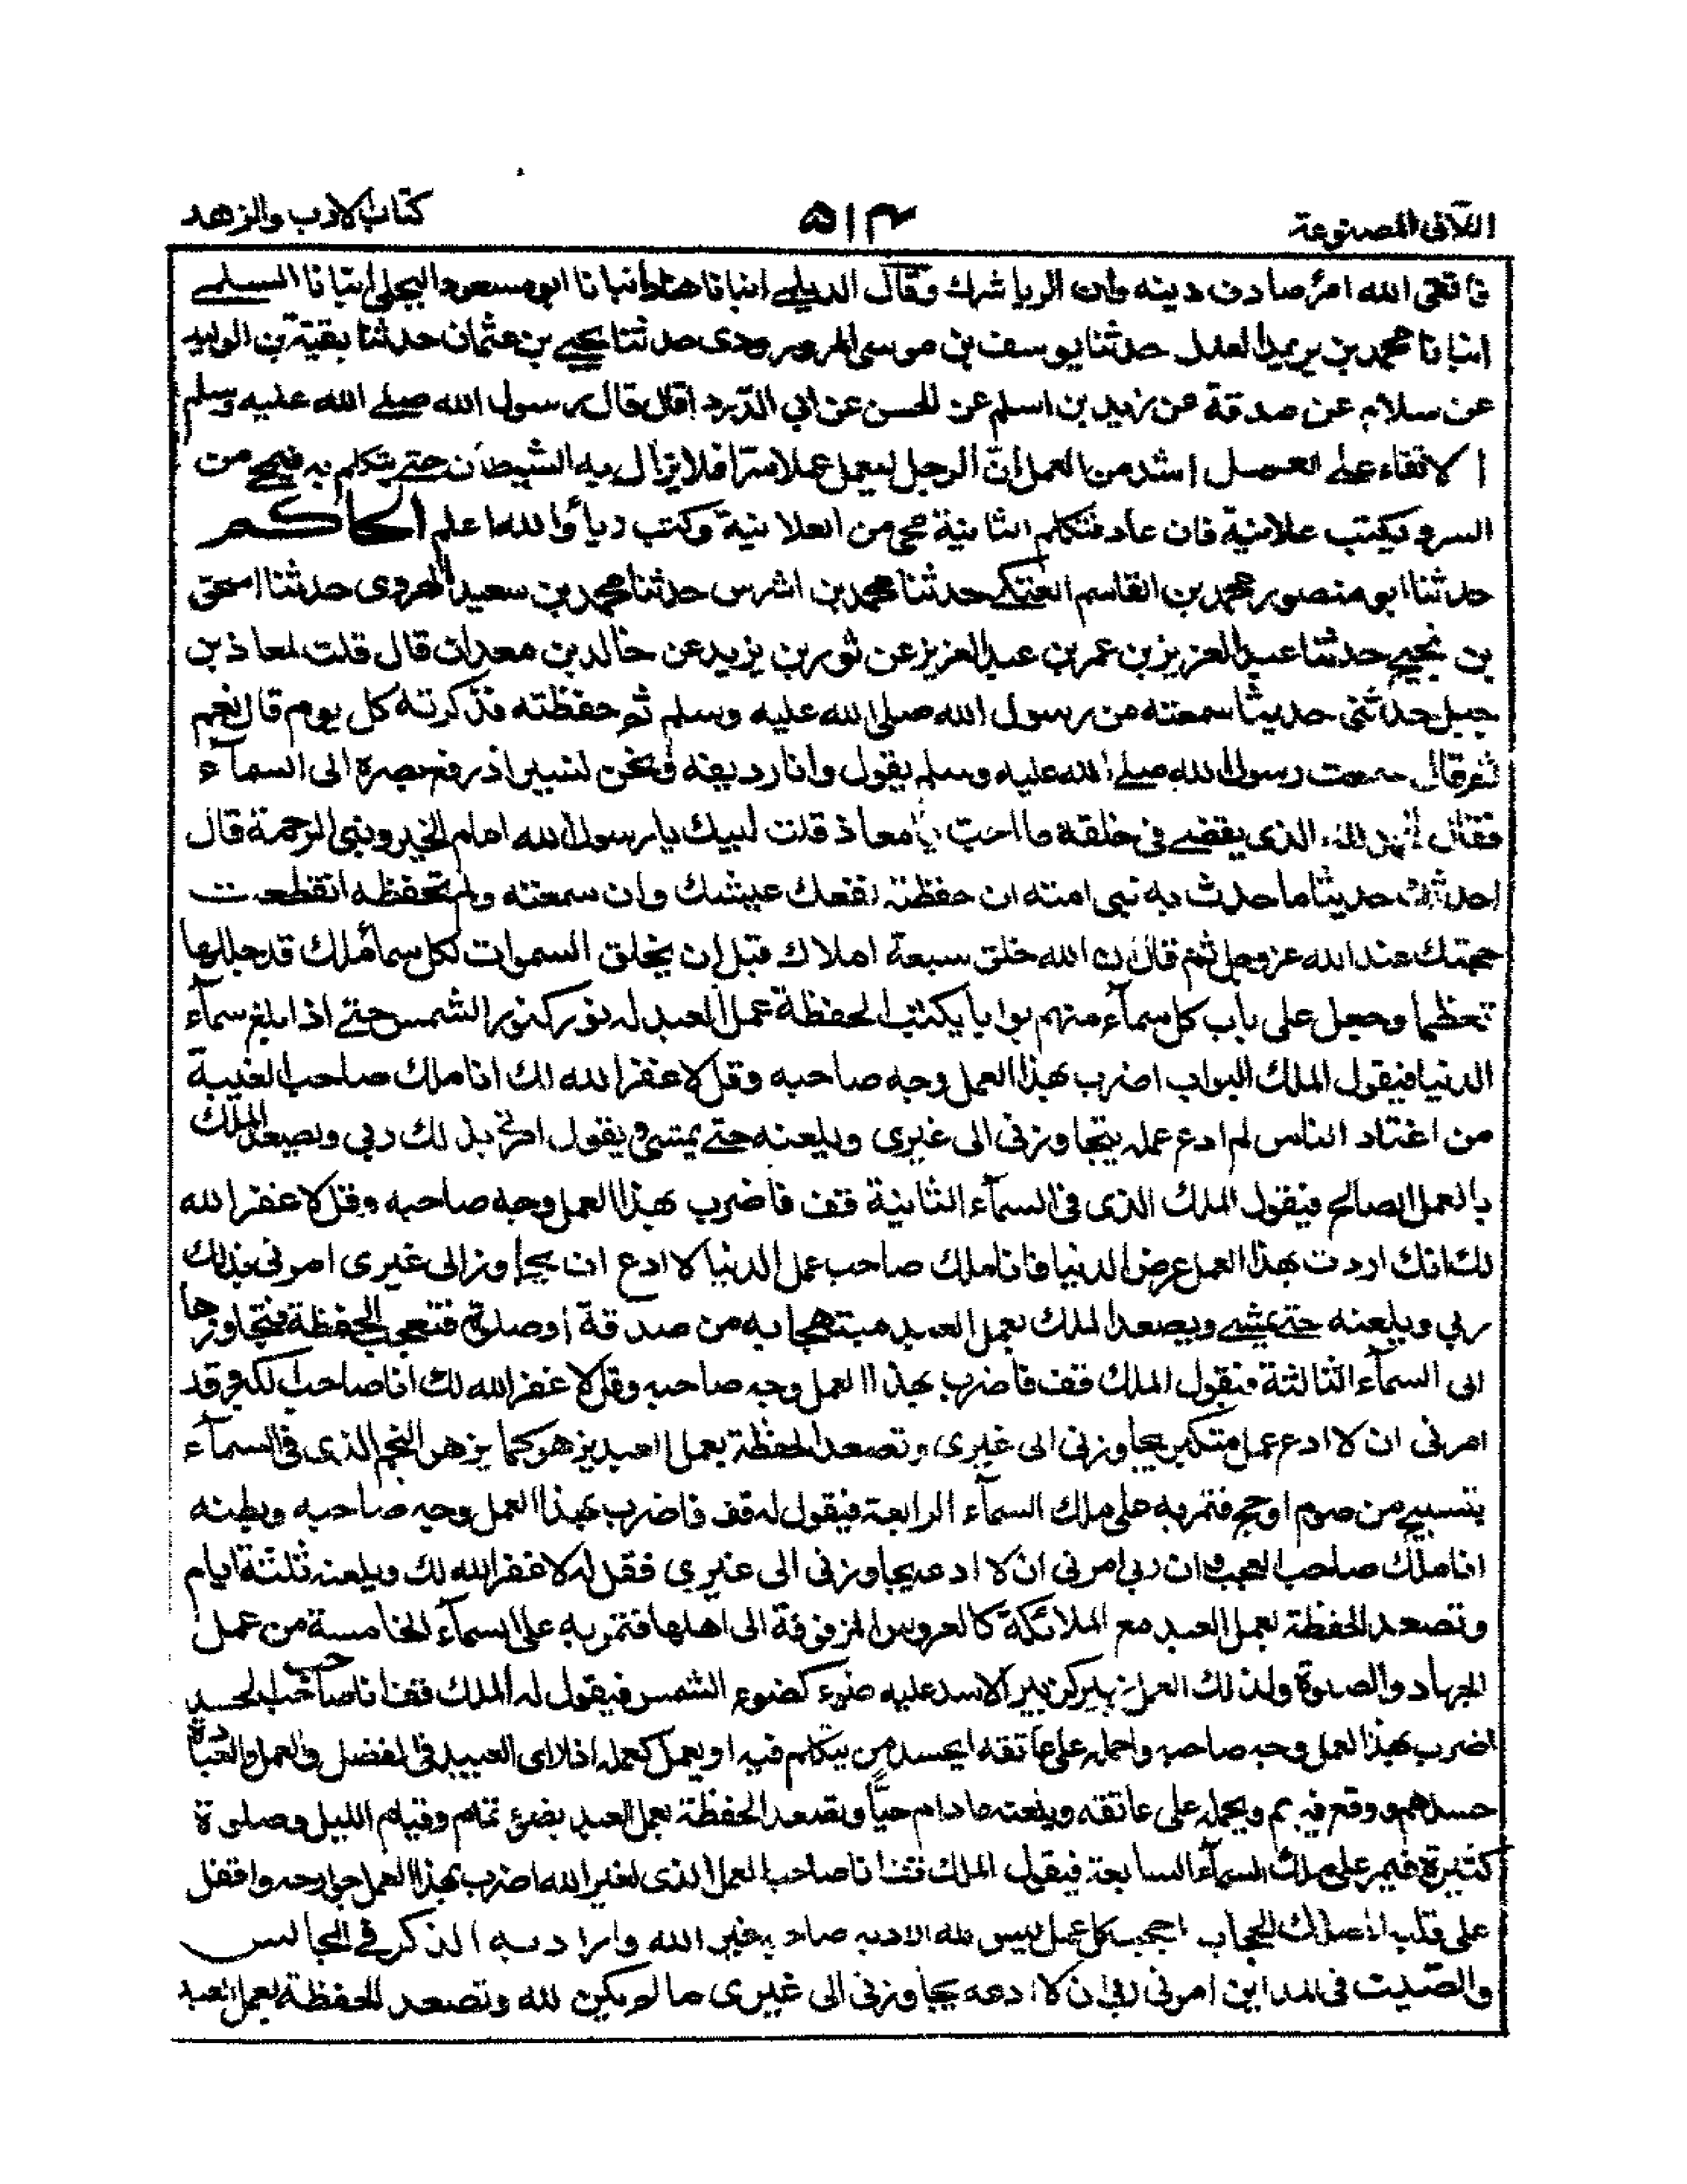 اللآلئ المصنوعة
٥١٣
كتاب الادب والزهد
فاتقى الله امرؤ صادف دينه وان الريا شرك وقال الديلمى انبانا هناد انبانا ابو مسعود البجلى انبانا السلمے
انبانا محمد بن يزيد العدل حدثنا يوسف بن موسى المرورودى حدثنا يحيے بن عثمان حدثنا بقية بن الوليد
عن سلام عن صدقة عن زيد بن اسلم عن الحسن عن ابي الدرداء قال قال رسول الله صلے الله عليه وسلم
الاتقاء على العمل اشد من العمل ان الرجل ليعمل عملا سرا فلا يزال به الشيطان حتے يتكلم به فيمحے من
السر ويكتب علانية فان عاد فتكلم الثانية محى من العلانية وكتب رياً والله اعلم الحاكم
حدثنا ابو منصور محمد بن القاسم العتكے حدثنا محمد بن اشرس حدثنا محمد بن سعيد الهروى حدثنا اسحق
بن نجيح حدثنا عبد العزيز بن عمر بن عبد العزيز عن ثور بن يزيد عن خالد بن معدان قال قلت لمعاذ بن
جبل حدثنى حديثا سمعته من رسول الله صلى الله عليه وسلم ثم حفظته فذكرته كل يوم قال نعم
ثم قال سمعت رسول الله صلے الله عليه وسلم يقول وانا رديفه ونحن نسير اذ رفع بصره الى السمآء
فقال الحمد لله الذى يقضے فى خلقه ما احب يا معاذ قلت لبيك يا رسول الله امام الخير ونبى الرحمة قال
احدثك حديثا ما حدث به نبى امته ان حفظته نفعك عيشك وان سمعته ولم تحفظه انقطعت
حجتك عند الله عز وجل ثم قال ان الله خلق سبعة املاك قبل ان يخلق السموات لكل سماء ملك قد جللها
تعظما وجعل على باب كل سمآء منهم بوابا يكتب الحفظة عمل العبد له نور كنور الشمس حتے اذا بلغ سمآء
الدنيا فيقول الملك البواب اضرب بهذا العمل وجه صاحبه وقل لا غفر الله لك انا ملك صاحب الغيبة
من اغتاب الناس لم ادع عمله يتجاوزنى الى غيرى ويلعنه حتے يمشى ويقول امرنى بذلك ربي ويصعد الملك
بالعمل الصالح فيقول الملك الذى فى السمآء الثانية قف فاضرب بهذا العمل وجه صاحبه وقل لا غفر الله
لك انك اردت بهذا العمل عرض الدنيا فانا ملك صاحب عمل الدنيا لا ادع ان يجاوز الى غيرى امرنى بذلك
ربي ويلعنه حتے يمشے ويصعد الملك بعمل العبد مبتهجا به من صدقة او صلوة فتعجب الحفظة فيتجاوزها
الى السمآء الثالثة فيقول الملك قف فاضرب بهذا العمل وجه صاحبه وقل لا غفر الله لك انا صاحب الكبر وقد
امرنى ان لا ادع عمل متكبر يجاوزنى الى غيرى وتصعد الحفظة بعمل العبد يزهو كما يزهو النجم الذى فى السمآء
بتسبيح من صوم او حج فتمر به على ملك السمآء الرابعة فيقول له قف فاضرب بهذا العمل وجه صاحبه وبطنه
انا ملك صاحب العجب وان ربي امرنى ان لا ادعه يجاوزنى الى غيرى فقل له لا غفر الله لك ويلعنه ثلثة ايام
وتصعد الحفظة بعمل العبد مع الملائكة كالعروس المزفوفة الى اهلها فتمر به على السمآء الخامسة من عمل
الجهاد والصلوة ولذلك العمل زئير كزئير الاسد عليه ضوء كضوء الشمس فيقول له الملك قف انا صاحب الحسد
اضرب بهذا العمل وجه صاحبه واحمله على عاتقه ايحسد من يتكلم فيه او يعمل كعمله اذا راى العبد فى الفضل فى العمل والعبادة
حسدهم ووقع فيهم ويحمله على عاتقه ويلعنه ما دام حياً وتصعد الحفظة بعمل العبد بضوء تمام وقيام الليل وصلوة
كثيرة فيمر على ملك السمآء السابعة فيقول الملك قف انا صاحب العمل الذى لغير الله اضرب بهذا العمل جوارحه واقفل
على قلبه انا ملك الحجاب احجب كل عمل ليس لله اراد به صاحبه غير الله واراد به الذكر فے المجالس
والصيت فى المداين امرنى ربي ان لا ادعه يجاوزنى الى غيرى ما لم يكن لله وتصعد الحفظة بعمل العبد